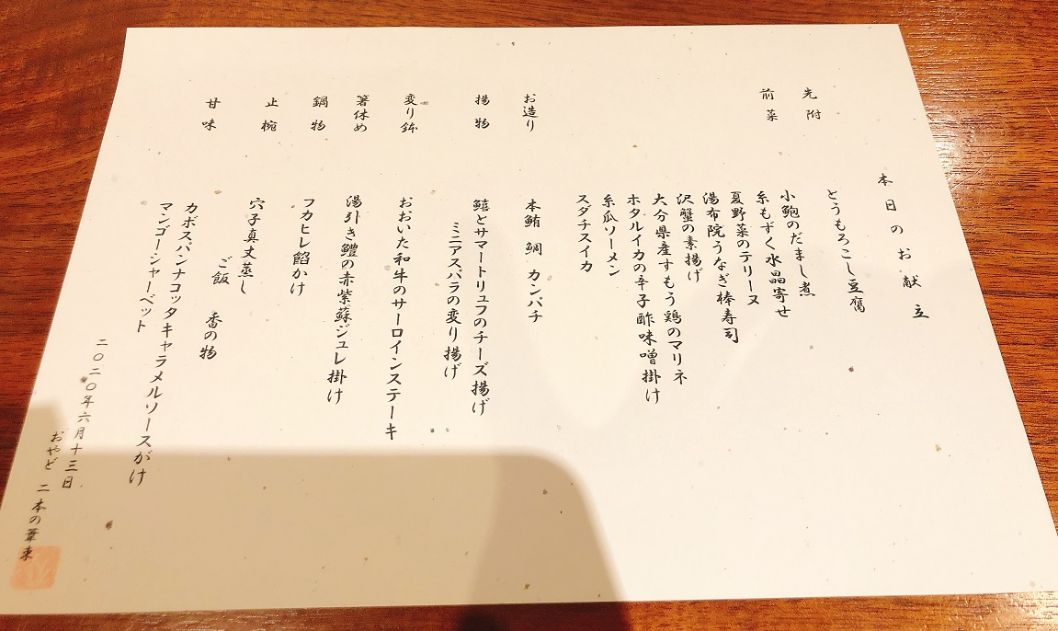 本日のお献立
先附
とうもろこし豆腐
前菜
小鮑のだまし煮
糸もずく水晶寄せ
夏野菜のテリーヌ
湯布院うなぎ棒寿司
沢蟹の素揚げ
大分県産すもう鶏のマリネ
ホタルイカの辛子酢味噌掛け
糸瓜ソーメン
スダチスイカ
お造り
本鮪 鯛 カンパチ
揚物
鱚とサマートリュフのチーズ揚げ
ミニアスパラの変り揚げ
変り鉢
おおいた和牛のサーロインステーキ
箸休め
湯引き鱧の赤紫蘇ジュレ掛け
鍋物
フカヒレ餡かけ
止椀
穴子真丈蒸し
ご飯 香の物
甘味
カボスパンナコッタキャラメルソースがけ
マンゴーシャーベット
二〇二〇年六月十三日
おやど 二本の葦束